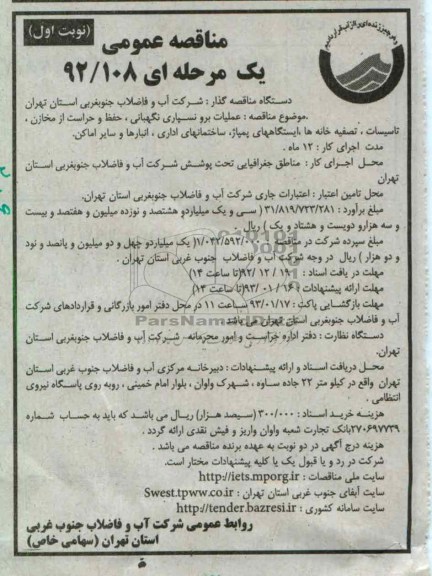 (نوبت اول)
و من الماء کل شیء حی
مناقصه عمومی
یک مرحله ای ۹۲/۱۰۸
دستگاه مناقصه گذار : شرکت آب و فاضلاب جنوبغربی استان تهران
.موضوع مناقصه : عملیات برو نسپاری نگهبانی ، حفظ و حراست از مخازن ،
تاسیسات ، تصفیه خانه ها ،ایستگاههای پمپاژ، ساختمانهای اداری ، انبارها و سایر اماکن.
مدت اجرای کار : ۱۲ ماه .
محل اجرای کار : مناطق جغرافیایی تحت پوشش شرکت آب و فاضلاب جنوبغربی استان
تهران
محل تامین اعتبار : اعتبارات جاری شرکت آب و فاضلاب جنوبغربی استان تهران.
مبلغ برآورد : ۳۱/۸۱۹/۷۲۳/۲۸۱ ( سی و یک میلیاردو هشتصد و نوزده میلیون و هفتصد و بیست
و سه هزارو دویست و هشتاد و یک ) ریال
مبلغ سپرده شرکت در مناقصه : ۱/۰۴۲/۵۹۲/۰۰۰( یک میلیاردو چهل و دو میلیون و پانصد و نود
و دو هزار ) ریال در وجه شرکت آب و فاضلاب جنوب غربی استان تهران .
مهلت در یافت اسناد : ۱۹ / ۱۲ / ۹۲(تا ساعت ۱۴)
مهلت ارائه پیشنهادات : ۱۶ / ۰۱ / ۹۳(تا ساعت ۱۴)
مهلت بازگشایی پاکت : ۹۳/۰۱/۱۷ ساعت ۱۱ در محل دفتر امور بازرگانی و قراردادهای شرکت
آب و فاضلاب جنوبغربی استان تهران می باشد
دستگاه نظارت : دفتر اداره حراست و امور محرمانه شرکت آب و فاضلاب جنوبغربی استان
تهران.
محل دریافت اسناد و ارائه پیشنهادات : دبیرخانه مرکزی آب و فاضلاب جنوب غربی استان
تهران واقع در کیلو متر ۲۲ جاده ساوه ، شهرک واوان ، بلوار امام خمینی ، روبه روی پاسگاه نیروی
انتظامی .
هزینه خرید اسناد : ۳۰۰/۰۰۰ (سیصد هزار) ریال می باشد که باید به حساب شماره
۲۷۰۶۹۷۷۳۹بانک تجارت شعبه واوان واریز و فیش نقدی ارائه گردد .
هزینه درج آگهی در دو نوبت به عهده برنده مناقصه می باشد .
شرکت در رد و یا قبول یک یا کلیه پیشنهادات مختار است.
سایت ملی مناقصات : http://iets.mporg.ir
سایت آبفای جنوب غربی استان تهران : Swest.tpww.co.ir
سایت سامانه کشوری : http://tender.bazresi.ir
روابط عمومی شرکت آب و فاضلاب جنوب غربی
استان تهران (سهامی خاص)